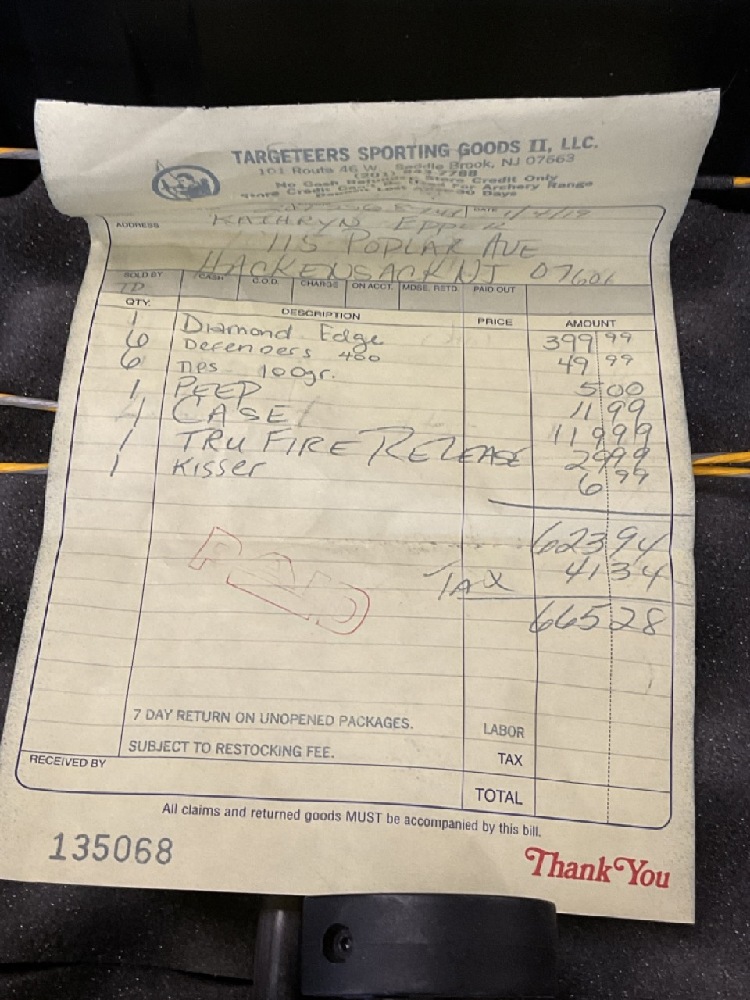 TARGETEERS SPORTING GOODS II, LLC.
101 Route 46 W. Saddle Brook, NJ 07663
(201) 843-7788
No Cash Refunds Store Credit Only
Store Credit Can't Be Used For Archery Range
DATE 1/4/19
KATHRYN EPPER
ADDRESS 115 POPLAR AVE
HACKENSACK NJ 07601
SOLD BY CASH C.O.D. CHARGE ON ACCT. MDSE. RETD. PAID OUT
TD
QTY. DESCRIPTION PRICE AMOUNT
1 Diamond Edge 399 99
6 Defenders 400 49 99
6 TIPS 100gr. 5 00
1 PEEP 11 99
1 CASE 119 99
1 TRU FIRE RELEASE 29 99
1 Kisser 6 99
623 94
TAX 41 34
665 28
PAID
7 DAY RETURN ON UNOPENED PACKAGES. LABOR
SUBJECT TO RESTOCKING FEE. TAX
RECEIVED BY
TOTAL
All claims and returned goods MUST be accompanied by this bill.
135068
Thank You